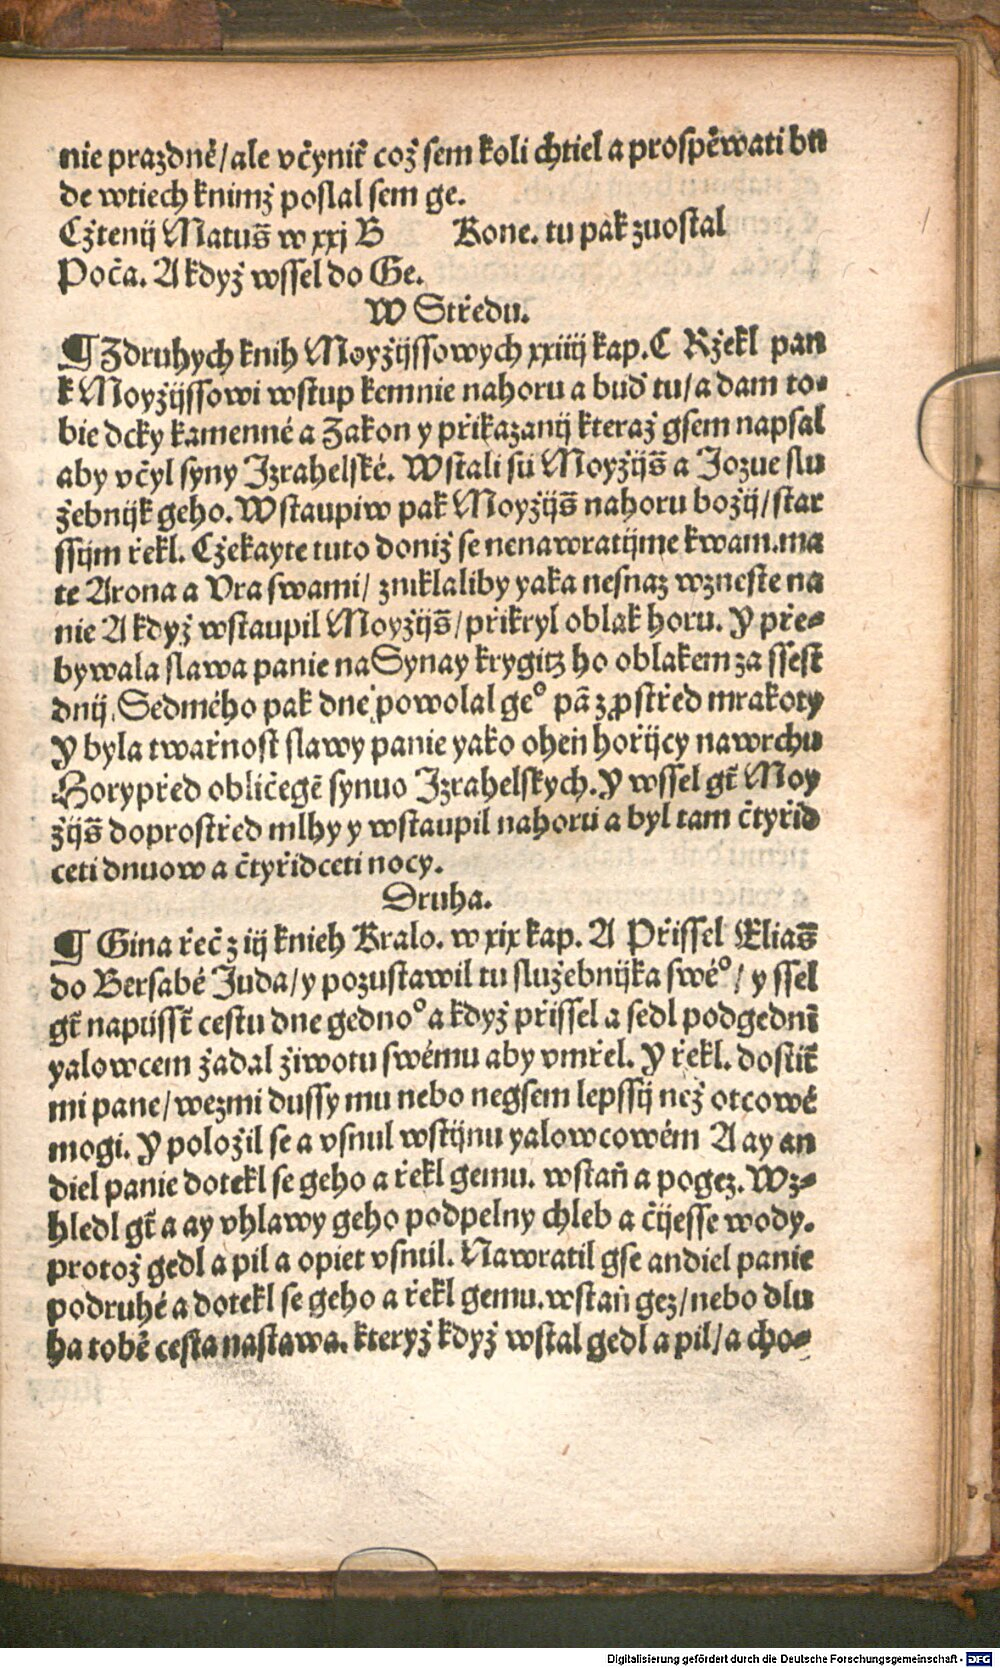 nie prazdnė/ale včynit̃ což sem koli chtiel a prospėwati bu
de wtiech knimž poslal sem ge.
Cžtenij Matus̃ w xxj B Kone. tu pak zuostal
Poča. A když wssel do Ge.
W Středu.
¶ Zdruhych knih Moyžijssowych xxiiij kap. C Ržekl pan
k Moyžijssowi wstup kemnie nahoru a buď tu/a dam to⸗
bie dcky kamenné a Zakon y přikazanij kteraž gsem napsal
aby včyl syny Izrahelské. Wstali sú Moyžijs̃ a Jozue slu
žebnijk geho. Wstaupiw pak Moyžijs̃ nahoru božij/star
ssijm řekl. Cžekayte tuto doniž se nenawratijme kwam. ma
te Arona a Vra swami/ zniklaliby yaka nesnaz wzneste na
nie A když wstaupil Moyžijs̃/přikryl oblak horu. Y pře⸗
bywala slawa panie na Synay krygitz ho oblakem za ssest̃
dnij. Sedmého pak dnė powolal ge° pã z ꝓstřed mrakoty
Y byla twařnost slawy panie yako oheň hořijcy nawrchu
Hory před obličegẽ synuo Izrahelskych. Y wssel gt̃ Moy
žijs̃ doprostřed mlhy y wstaupil nahoru a byl tam čtyřid
ceti dnuow a čtyřidceti nocy.
Druha.
¶ Gina řeč z iij knieh Kralo. w xix kap. A Přissel Elias̃
do Bersabé Juda/y pozustawil tu služebnijka swé°/ y ssel
gt̃ napússt̃ cestu dne gedno° a když přissel a sedl podgednĩ
yalowcem žadal žiwotu swému aby vmřel. Y řekl. dostit̃
mi pane/wezmi dussy mu nebo negsem lepssij než otcowé
mogi. Y položil se a vsnul wstijnu yalowcowém A ay an
diel panie dotekl se geho a řekl gemu. wstaň a pogez. Wz⸗
hledl gt̃ a ay vhlawy geho podpelny chleb a čijesse wody.
protož gedl a pil a opiet vsnul. Nawratil gse andiel panie
podruhé a dotekl se geho a řekl gemu. wstaň gez/nebo dlu
ha tobė cesta nastawa. kteryž když wstal gedl a pil/a cho⸗
Digitalisierung gefördert durch die Deutsche Forschungsgemeinschaft - DFG